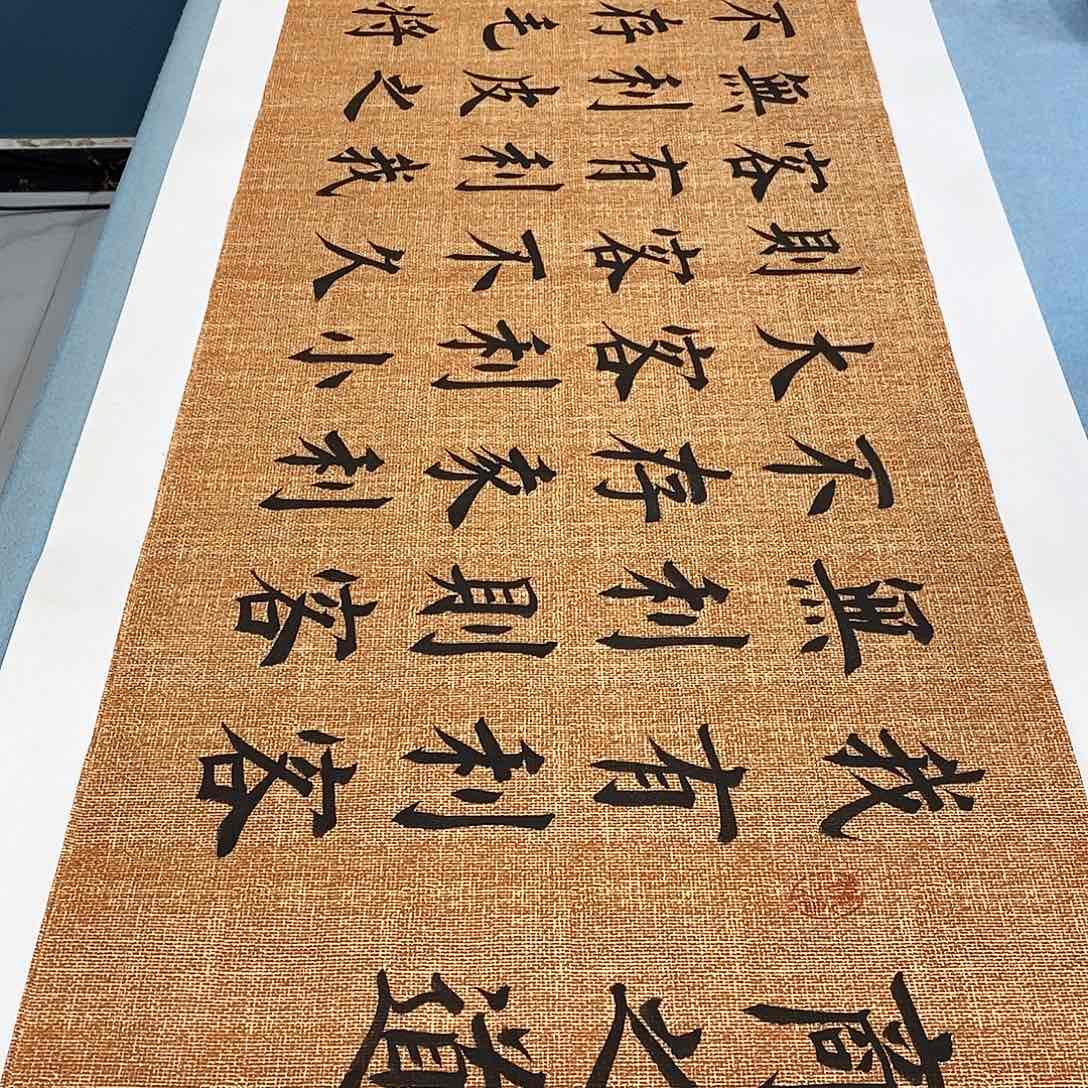 商之道
我有利客
無利則客
不存我利
大客利小
則客不久
客有利我
無利皮之
不存毛将